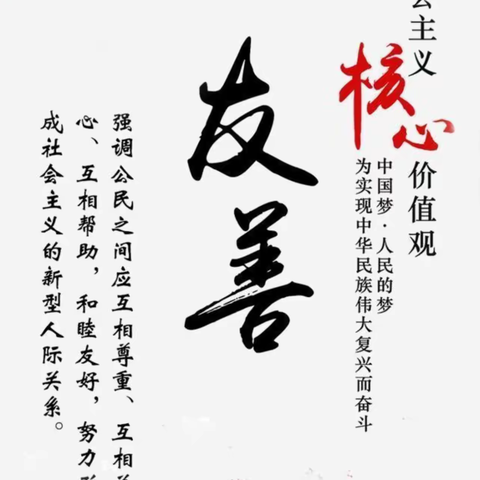 会主义
核心
价值观
中国梦·人民的梦
为实现中华民族伟大复兴而奋斗
友善
强调公民之间应互相尊重、互相
心、互相帮助，和睦友好，努力
成社会主义的新型人际关系。